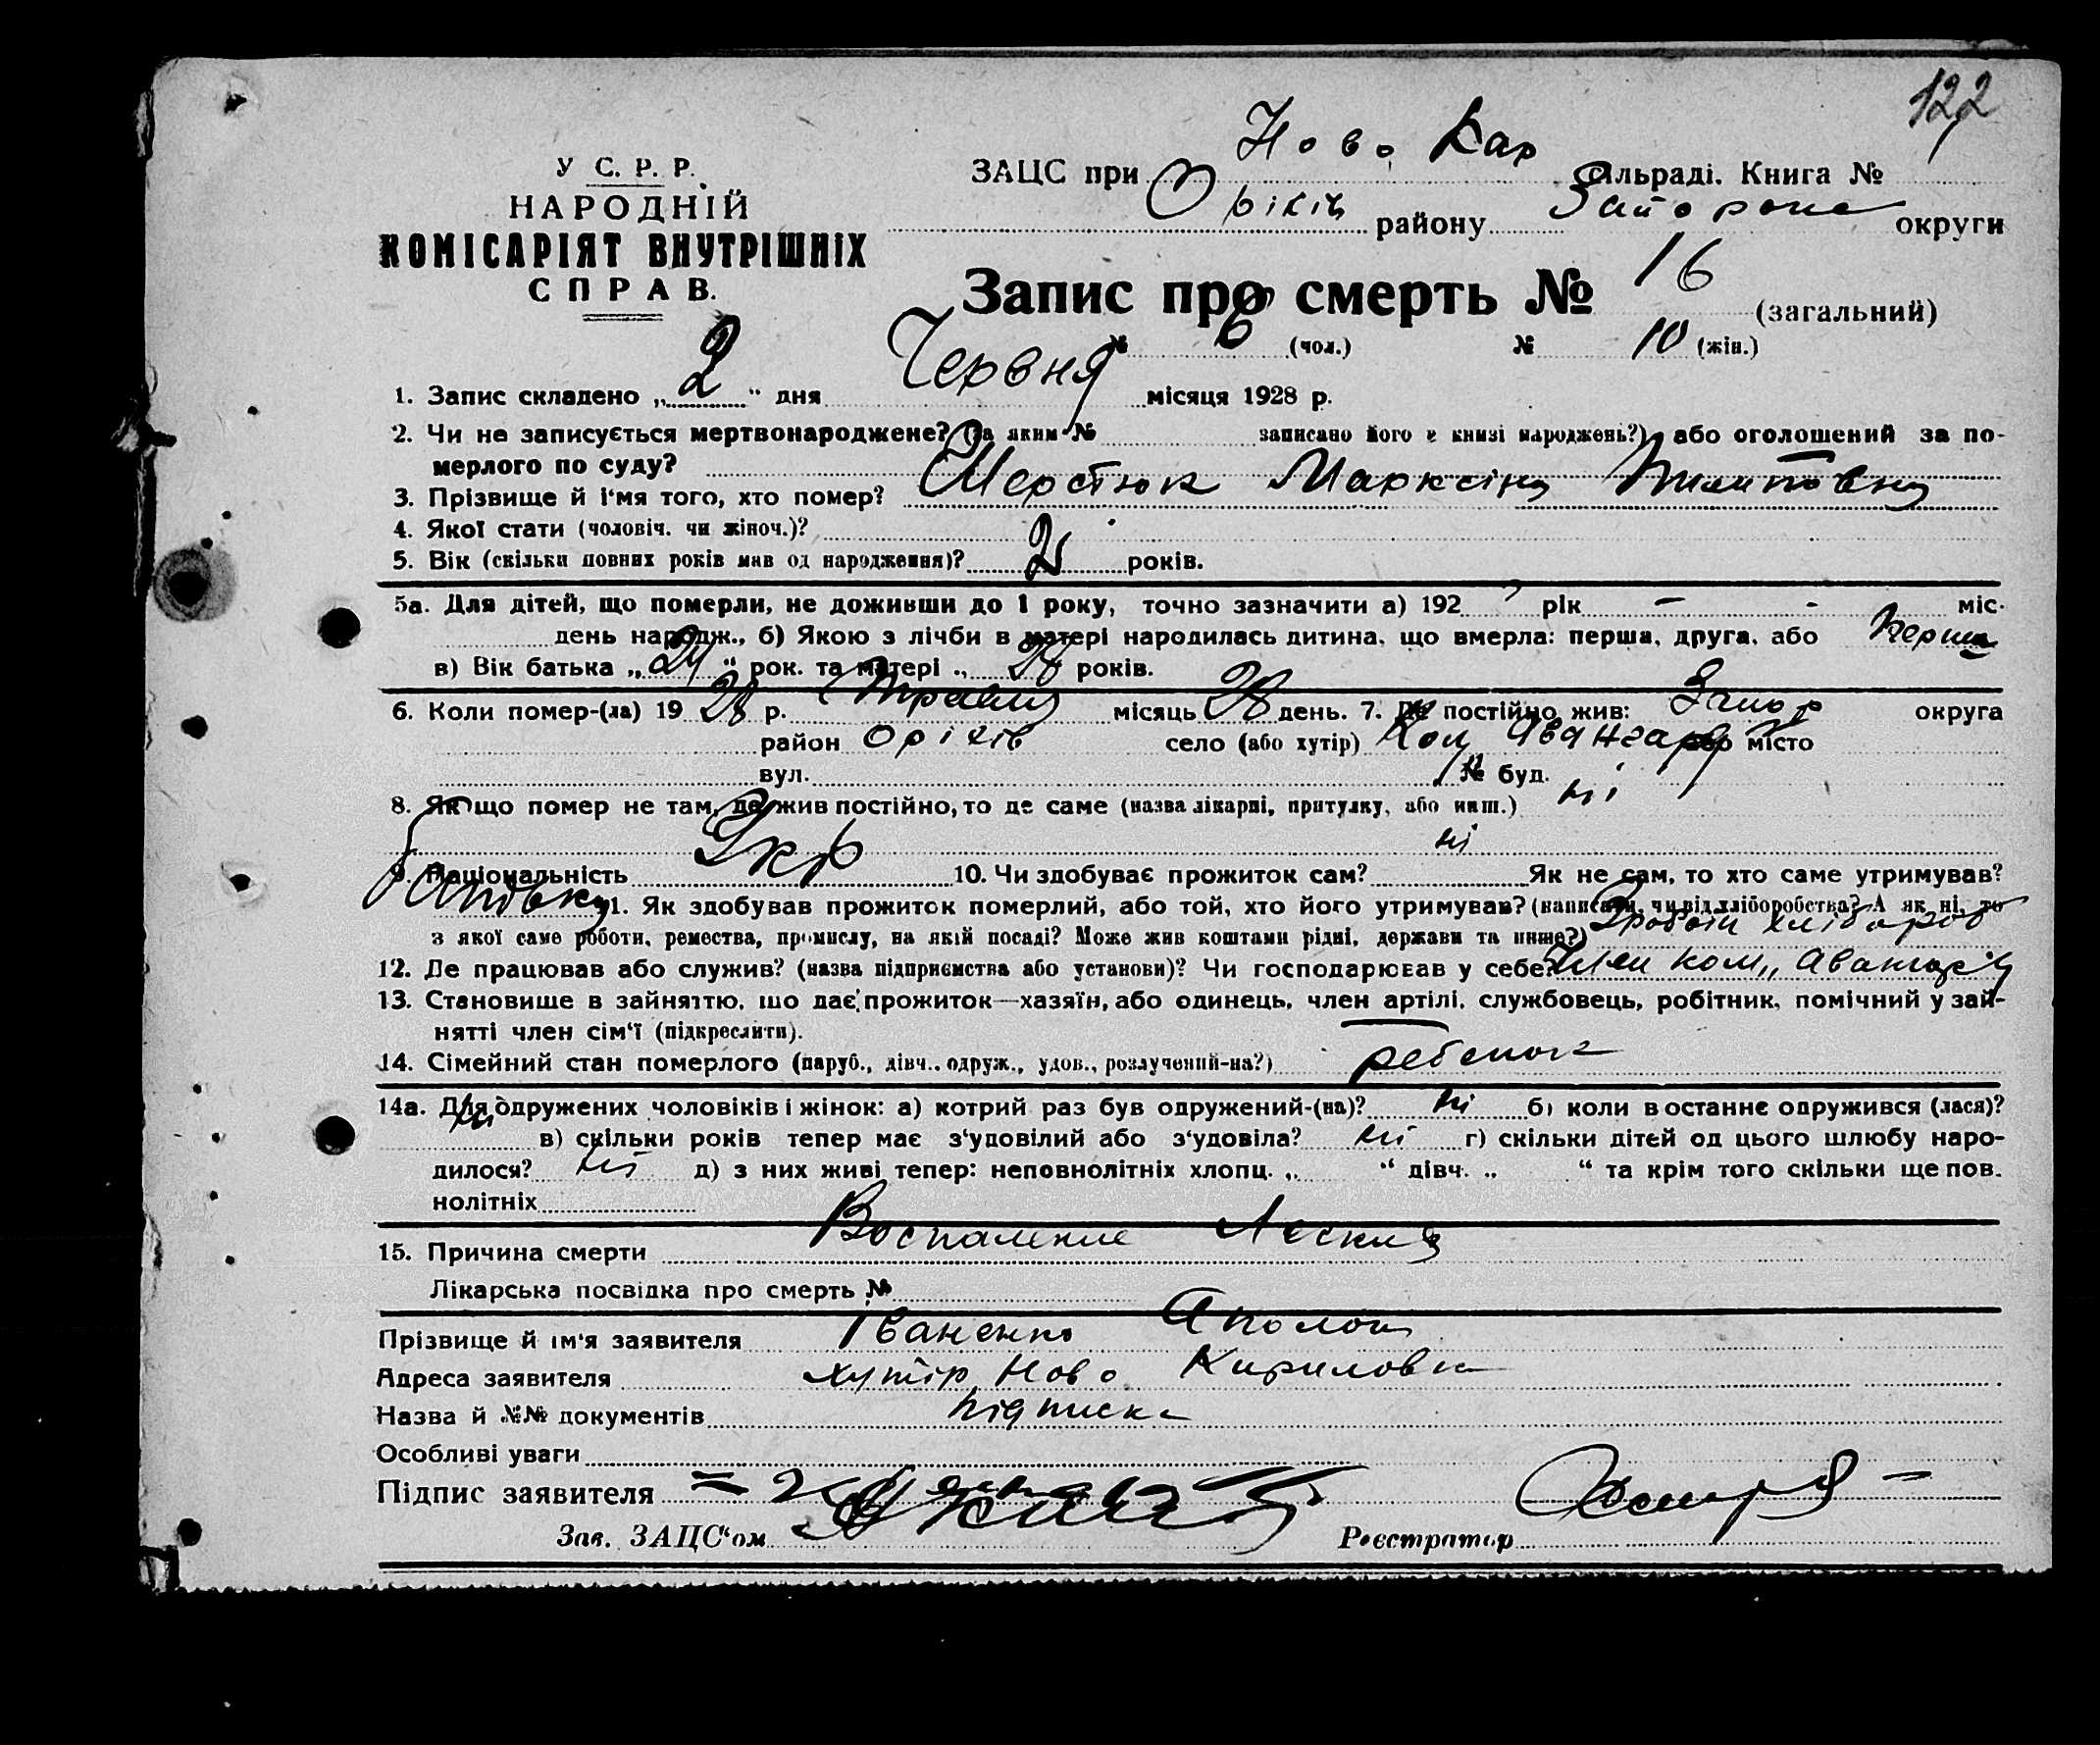 122
У С. Р. Р.
НАРОДНІЙ
КОМІСАРІЯТ ВНУТРІШНІХ
СПРАВ.
ЗАЦС при Ново Кар сільраді. Книга №
Оріхів району Запорож округи
Запис про смерть № 16 (загальний)
№ 6 (чол.) № 10 (жін.)
1. Запис складено „ 2 “ дня Червня місяця 1928 р.
2. Чи не записується мертвонароджене? (за яким № записано його в книзі народжень?) або оголошений за по-
мерлого по суду?
3. Прізвище й і'мя того, хто помер? Шерстюк Марксіна
4. Якої стати (чоловіч. чи жіноч.)?
5. Вік (скільки повних років мав од народження)? 2 років.
5а. Для дітей, що померли, не доживши до 1 року, точно зазначити а) 192 рік — - міс.
день народж., б) Якою з лічби в матері народилась дитина, що вмерла: перша, друга, або перша
в) Вік батька „ 24 “ рок. та матері „ 28 років.
6. Коли помер-(ла) 19 28 р. Травня місяць 28 день. 7. Де постійно жив: Запор округа
район Оріхів село (або хутір) Ком Авангард або місто
вул. № буд.
8. Якщо помер не там, де жив постійно, то де саме (назва лікарні, притулку, або инш.) ні
ні
9. Національність Укр 10. Чи здобуває прожиток сам? Як не сам, то хто саме утримував?
Батьки 11. Як здобував прожиток померлий, або той, хто його утримував? (написати, чи від хліборобства? А як ні, то
з якої саме роботи, ремества, промислу, на якій посаді? Може жив коштами рідні, держави та инше?) хлібороб
12. Де працював або служив? (назва підприємства або установи)? Чи господарював у себе? Член ком,, Авангард
13. Становище в зайняттю, що дає прожиток—хазяїн, або одинець, член артілі, службовець, робітник, помічний у зай-
нятті член сім'ї (підкреслити).
14. Сімейний стан померлого (паруб., дівч., одруж., удов., розлучений-на?) ребенок
14а. Для одружених чоловіків і жінок: а) котрий раз був одружений-(на)? ні б) коли востаннє одружився (лася)?
ні в) скільки років тепер має з'удовілий або з'удовіла? ні г) скільки дітей од цього шлюбу наро-
дилося? ні д) з них живі тепер: неповнолітніх хлопц. „ “ дівч. „ “ та крім того скільки ще пов.
нолітніх
15. Причина смерти Воспаление Лёгких
Лікарська посвідка про смерть №
Прізвище й ім'я заявителя Іваненко Аполон
Адреса заявителя хутір Ново Кириловка
Назва й №№ документів підписка
Особливі уваги
Підпис заявителя
Зав. ЗАЦС'ом Реєстратор